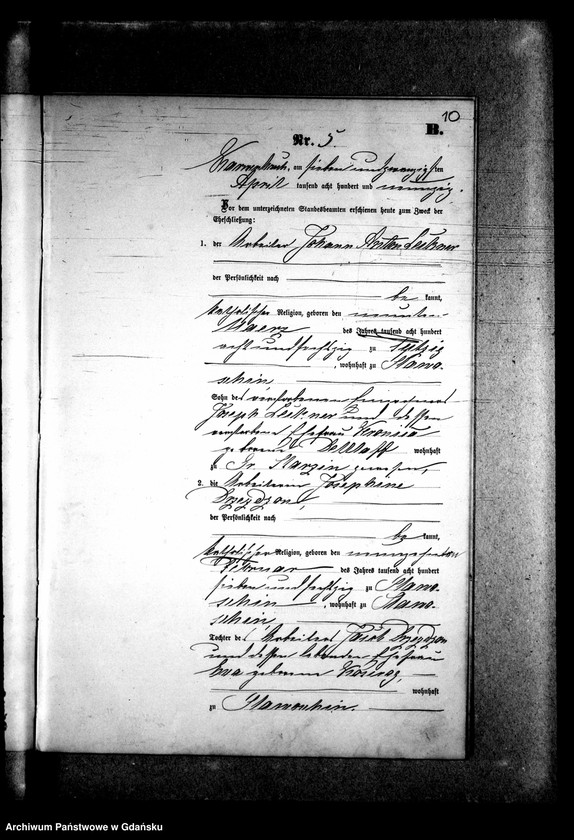 10
B.
Nr. 5.
am sieben und zwanzigsten
April tausend acht hundert und neunzig.
Vor dem unterzeichneten Standesbeamten erschienen heute zum Zweck der
Eheschließung:
1. der Arbeiter Johann Anton Leikner
der Persönlichkeit nach
be kannt,
katholischer Religion, geboren den neunten
Maerz des Jahres tausend acht hundert
acht und sechzig zu
, wohnhaft zu Slawo-
schin,
Sohn des verstorbenen
Joseph Leikner und dessen
verstorbene Ehefrau
geborene wohnhaft
zu Gr. Starzin gewesen,
2. die Arbeiterin Josephine
der Persönlichkeit nach
be kannt,
katholischer Religion, geboren den neunzehnten
Februar des Jahres tausend acht hundert
sieben und sechzig zu Slawo-
schin, wohnhaft zu Slawo-
schin,
Tochter des Arbeiters Jacob
und dessen lebenden Ehefrau
Eva geborene
wohnhaft
zu Slawoschin.
Archiwum Państwowe w Gdańsku